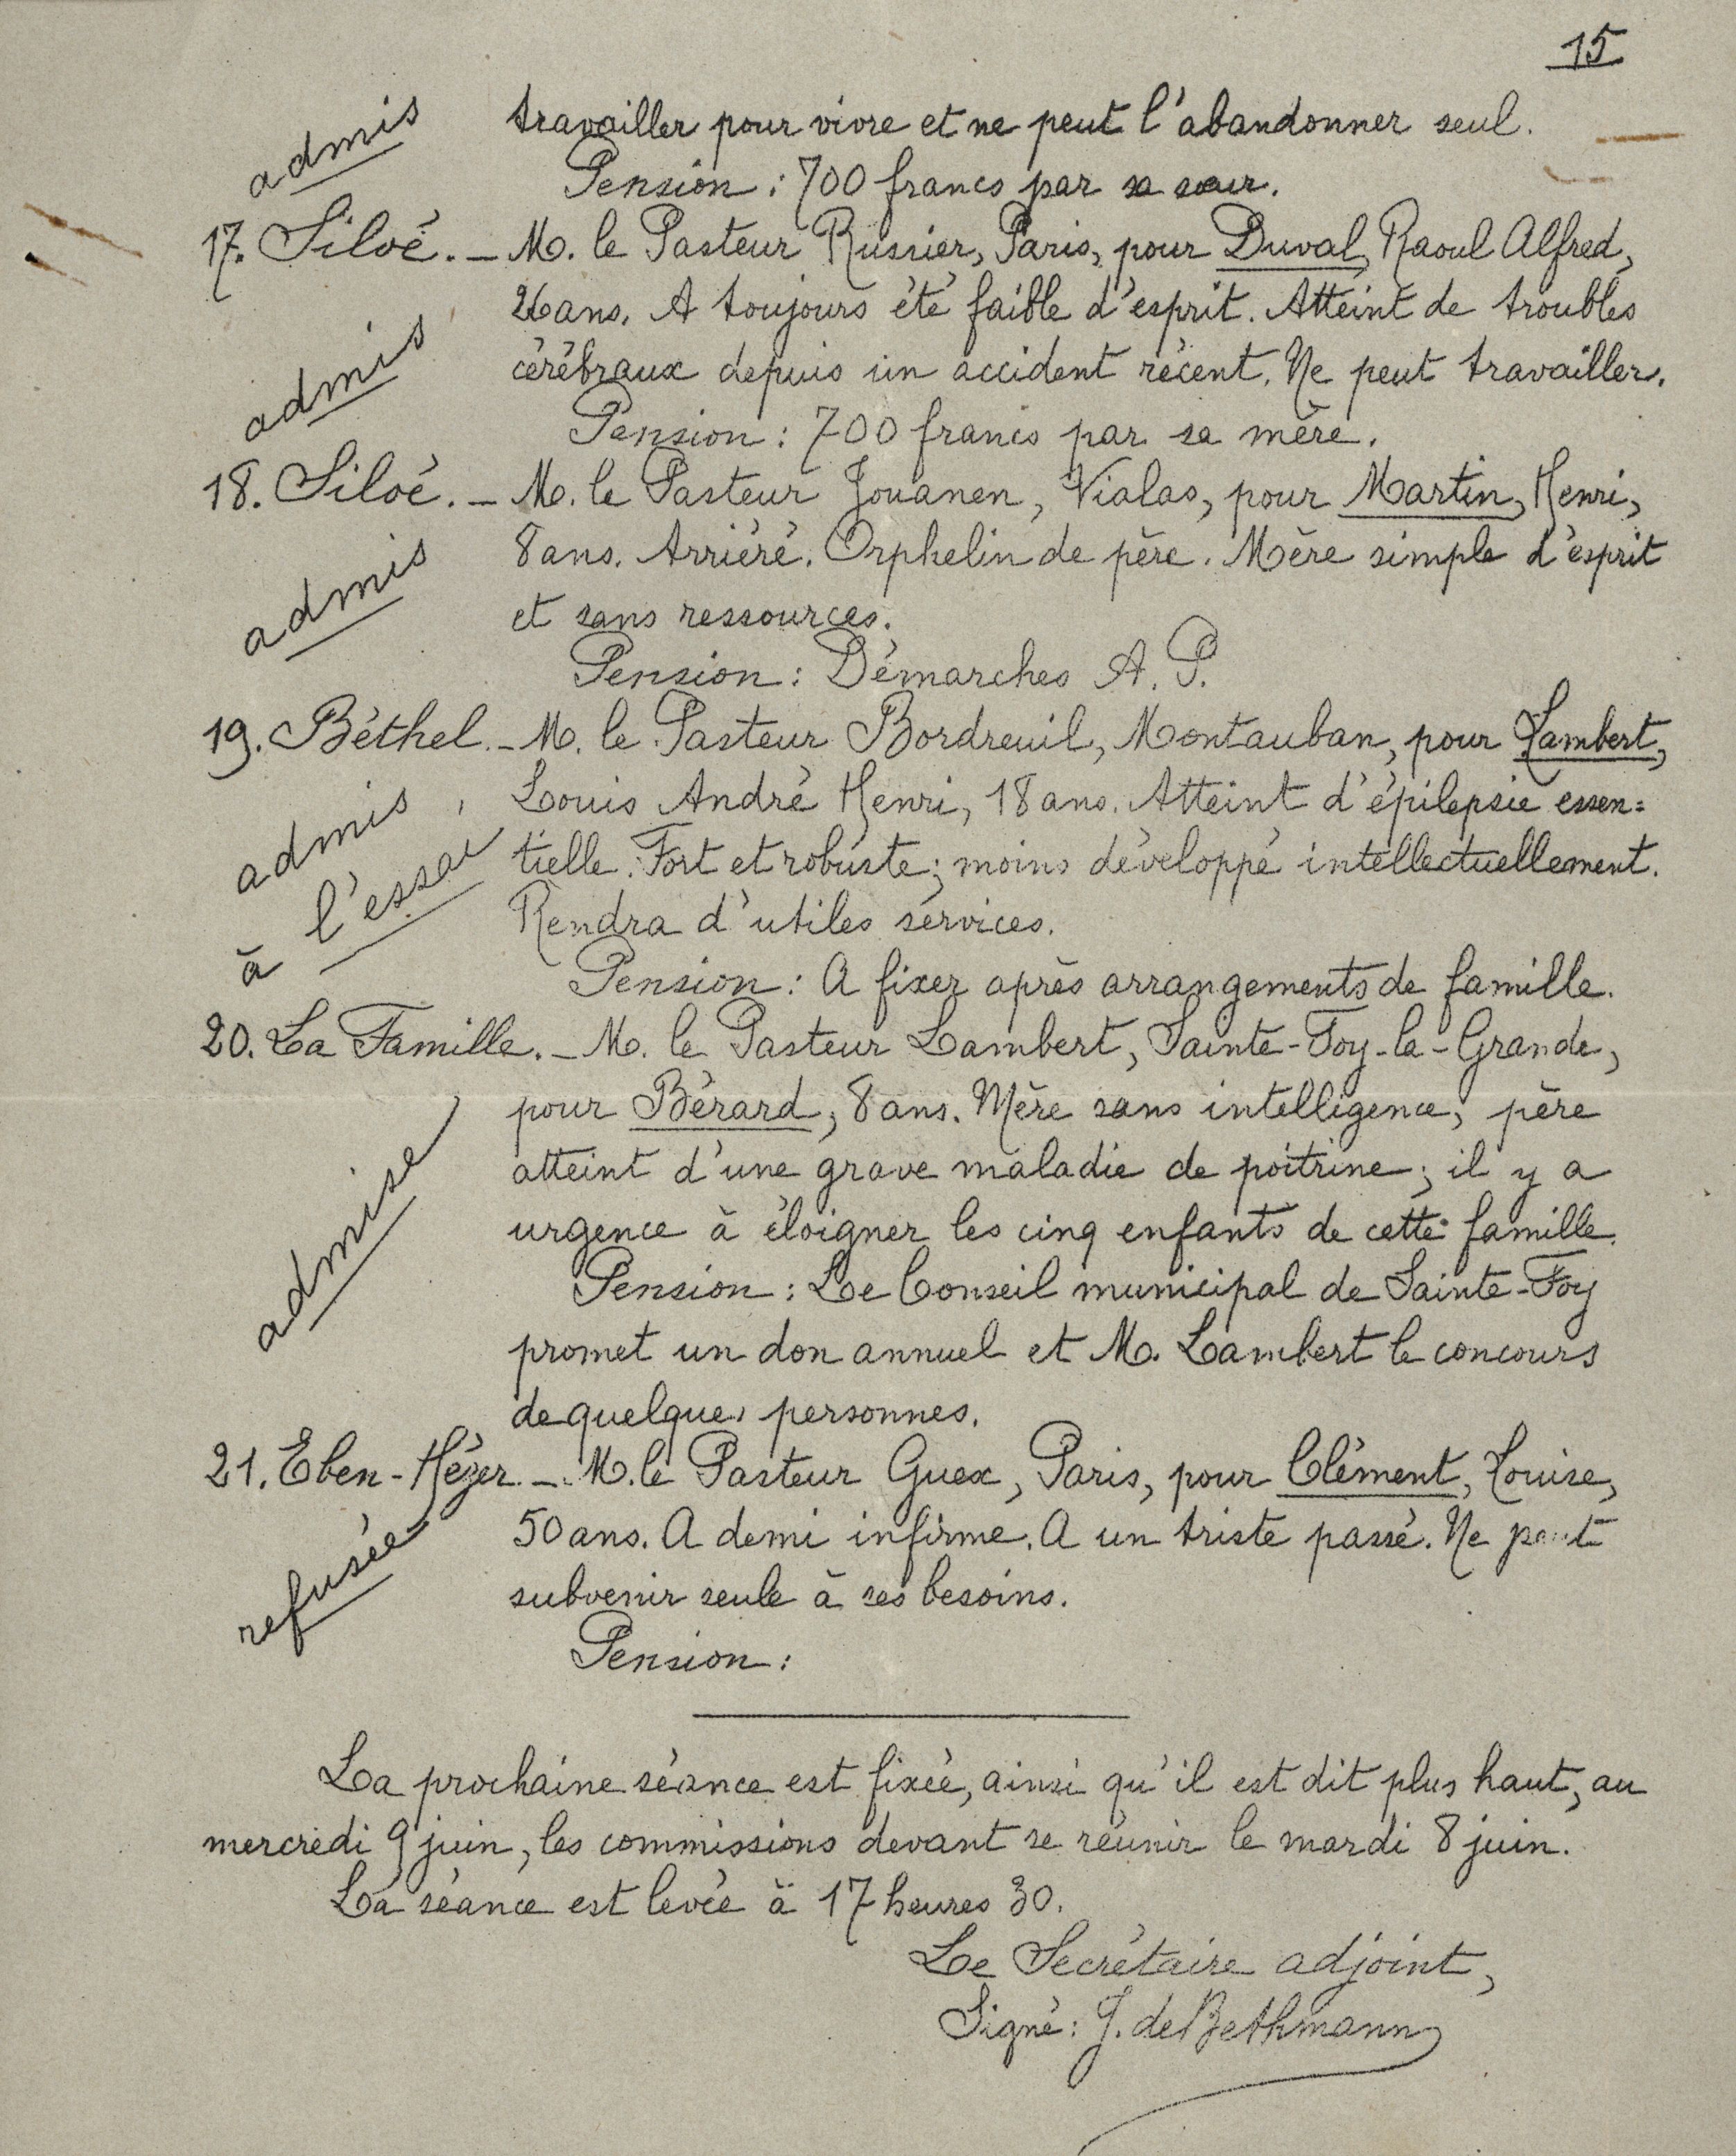 15
admis
travailler pour vivre et ne peut l'abandonner seul.
Pension : 700 francs par sa sœur.
17. Siloé. - M. le Pasteur Russier, Paris, pour Duval, Raoul Alfred,
26 ans. A toujours été faible d'esprit. Atteint de troubles
cérébraux depuis un accident récent. Ne peut travailler.
admis
Pension : 700 francs par sa mère.
18. Siloé. - M. le Pasteur Jouanen, Vialas, pour Martin, Henri,
8 ans. Arriéré. Orphelin de père. Mère simple d'esprit
admis
et sans ressources.
Pension : Démarches A. P.
19. Béthel. - M. le Pasteur Bordreuil, Montauban, pour Lambert,
Louis André Henri, 18 ans. Atteint d'épilepsie essen=
admis
tielle. Fort et robuste ; moins développé intellectuellement.
à l'essai
Rendra d'utiles services.
Pension : A fixer après arrangements de famille.
20. La Famille. - M. le Pasteur Lambert, Sainte-Foy-la-Grande,
pour Bérard, 8 ans. Mère sans intelligence, père
atteint d'une grave maladie de poitrine ; il y a
urgence à éloigner les cinq enfants de cette famille.
admise
Pension : Le Conseil municipal de Sainte-Foy
promet un don annuel et M. Lambert le concours
de quelques personnes.
21. Eben-Hézer. - M. le Pasteur Guex, Paris, pour Clément, Louise,
50 ans. A demi infirme. A un triste passé. Ne peut
refusée
subvenir seule à ses besoins.
Pension :
La prochaine séance est fixée, ainsi qu'il est dit plus haut, au
mercredi 9 juin, les commissions devant se réunir le mardi 8 juin.
La séance est levée à 17 heures 30.
Le Secrétaire adjoint,
Signé : J. de Bethmann